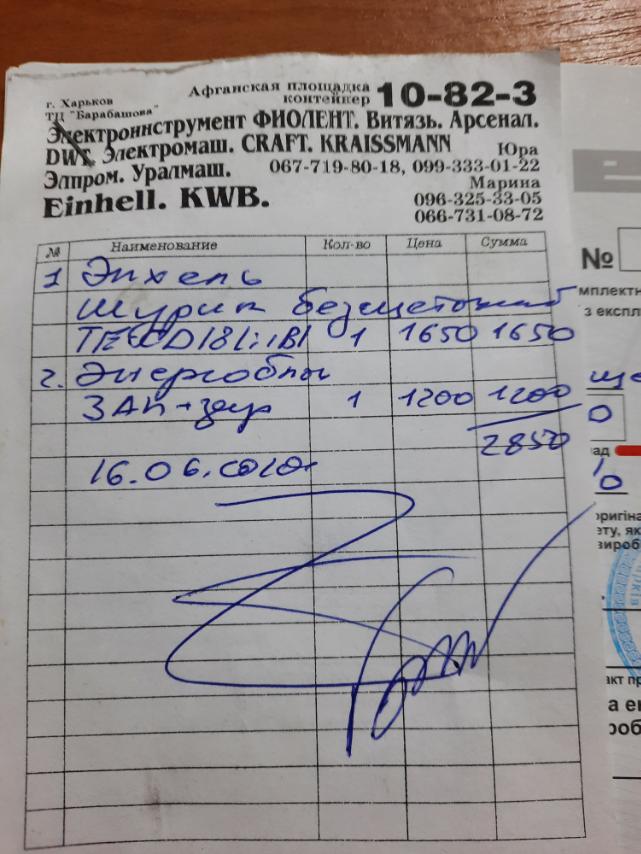 г. Харьков
ТЦ "Барабашова"
Афганская площадка
контейнер 10-82-3
Электроинструмент ФИОЛЕНТ. Витязь. Арсенал.
DWT. Электромаш. CRAFT. KRAISSMANN
Элпром. Уралмаш.
Юра
067-719-80-18, 099-333-01-22
Марина
Einhell. KWB.
096-325-33-05
066-731-08-72
№ Наименование Кол-во Цена Сумма
1 Энхель
Шурик
1 1650 1650
2. Энергоблы
3 Ah + зар 1 1200 1200
2850
16.06.2020г
№
мплектн
з експл
ще
0
ад
0
оригіна
ету, як
вироб
акт пр
а ек
роб